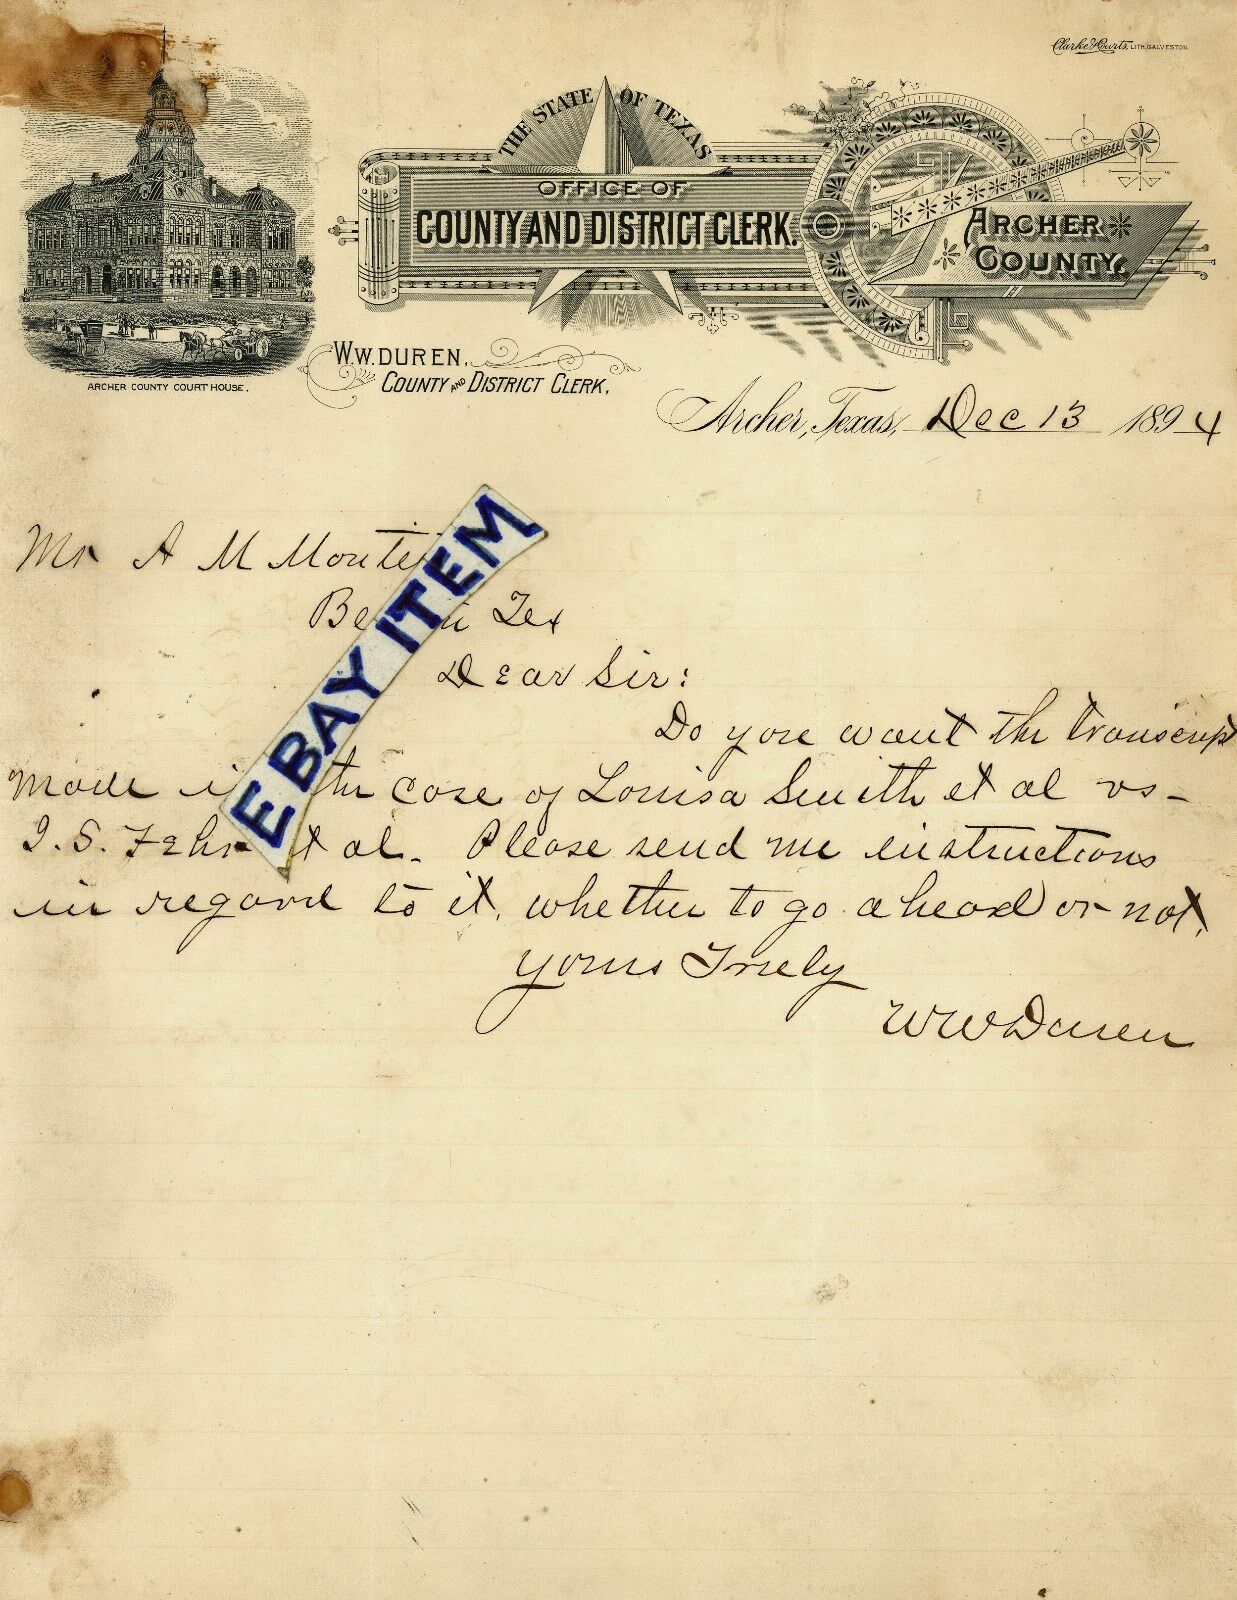 Clarke & Courts, LITH. GALVESTON
THE STATE OF TEXAS
OFFICE OF
COUNTY AND DISTRICT CLERK.
ARCHER
COUNTY.
ARCHER COUNTY COURT HOUSE.
W.W. DUREN,
COUNTY AND DISTRICT CLERK.
Archer, Texas, Dec 13 1894
Mr A M
Tex
E BAY ITEM
Dear Sir:
Do you want the transcript
made the case of Louisa Smith et al vs-
J. S. al. Please send me instructions
in regard to it, whether to go ahead or not.
Yours Truely
WW Duren